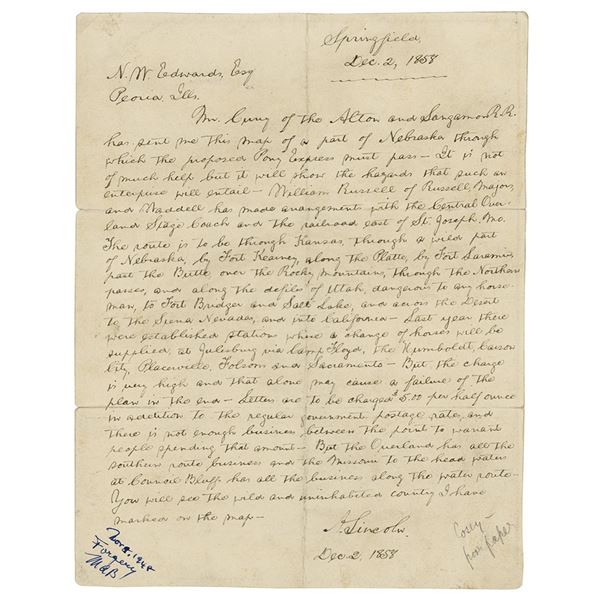 Springfield,
Dec. 2, 1858
N. W. Edwards, Esq
Peoria, Ills.
Mr. Curry of the Alton and Sangamon R.R.
has sent me this map of a part of Nebraska through
which the proposed Pony Express must pass — It is not
of much help but it will show the hazards that such an
enterprise will entail — William Russell of Russell, Majors,
and Waddell has made arrangement with the Central Over-
land Stage Coach and the railroad east of St. Joseph, Mo.
The route is to be through Kansas, through a wild part
of Nebraska, by Fort Kearney, along the Platte, by Fort Laramie,
past the Butte over the Rocky Mountains, through the Northern
passes, and along the defiles of Utah, dangerous to any horse-
man, to Fort Bridger and Salt Lake, and across the Desert
to the Sierra Nevadas, and into California — Last year there
were established stations where a change of horses will be
supplied, at Julesburg via Camp Floyd, the Humboldt, Carson
City, Placerville, Folsom and Sacramento — But the charge
is very high and that alone may cause a failure of the
plan in the end — Letters are to be charged 5.00 per half ounce
in addition to the regular government postage rates, and
there is not enough business between the point to warrant
people spending that amount — But the Overland has all the
southern route business and the Missouri to the head waters
at Council Bluff has all the business along the water route —
You will see the wild and uninhabited country I have
marked on the map —
A. Lincoln.
Dec. 2, 1858
Forgery
MAB
poor paper